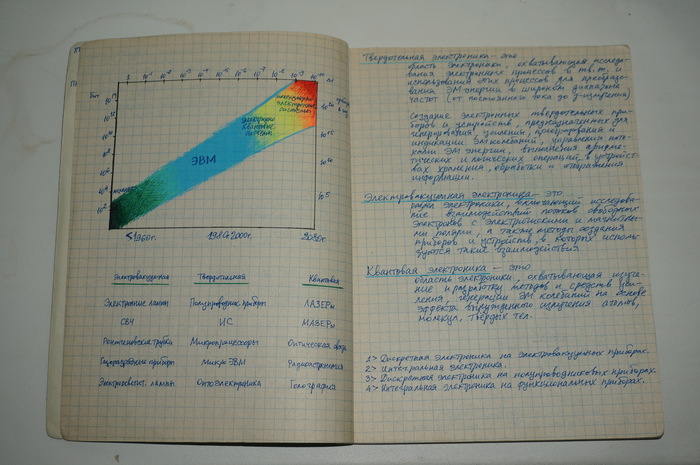 1 10⁻¹ 10⁻² 10⁻³ 10⁻⁴ 10⁻⁵ 10⁻⁶ 10⁻⁷ 10⁻⁸ 10⁻⁹ 10⁻¹⁰
Бит
10²⁰
10¹⁵
10¹⁰
10⁵
ЭВМ
электронно
квантовые
системы
≤1960г. 1980-2000г. 2030г.
Электровакуумная Твердотельная Квантовая
Электронные лампы Полупроводник. приборы ЛАЗЕРы
СВЧ ИС МАЗЕРы
Рентгеновские трубки Микропроцессоры Оптическая
Газоразрядные приборы МикроЭВМ Радиоастрономия
Электросвет. лампы Оптоэлектроника Голография
Твердотельная электроника – это
область электроники, охватывающая исследо-
вания электронных процессов в тв. т. и
использования этих процессов для преобразо-
вания ЭМ энергии в широком диапазоне
частот (от постоянного тока до γ-излучения)
Создание электронных твердотельных при-
боров и устройств, предназначенных для
генерирования, усиления, преобразования и
индикации ЭМ колебаний, управления пото-
ками ЭМ энергии, выполнения арифме-
тических и логических операций, в устройст-
вах хранения, обработки и отображения
информации.
Электровакуумная электроника – это
раздел электроники, включающий исследова-
ние взаимодействий потоков свободных
электронов с электрическими и магнитны-
ми полями, а также методы создания
приборов и устройств, в которых исполь-
зуются такие взаимодействия
Квантовая электроника – это
область электроники, охватывающая изуче-
ние и разработку методов и средств уси-
ления, генерации ЭМ колебаний на основе
эффекта вынужденного излучения атомов,
молекул, твёрдых тел.
1> Дискретная электроника на электровакуумных приборах.
2> Интегральная электроника.
3> Дискретная электроника на полупроводниковых приборах.
4> Интегральная электроника на функциональных приборах.